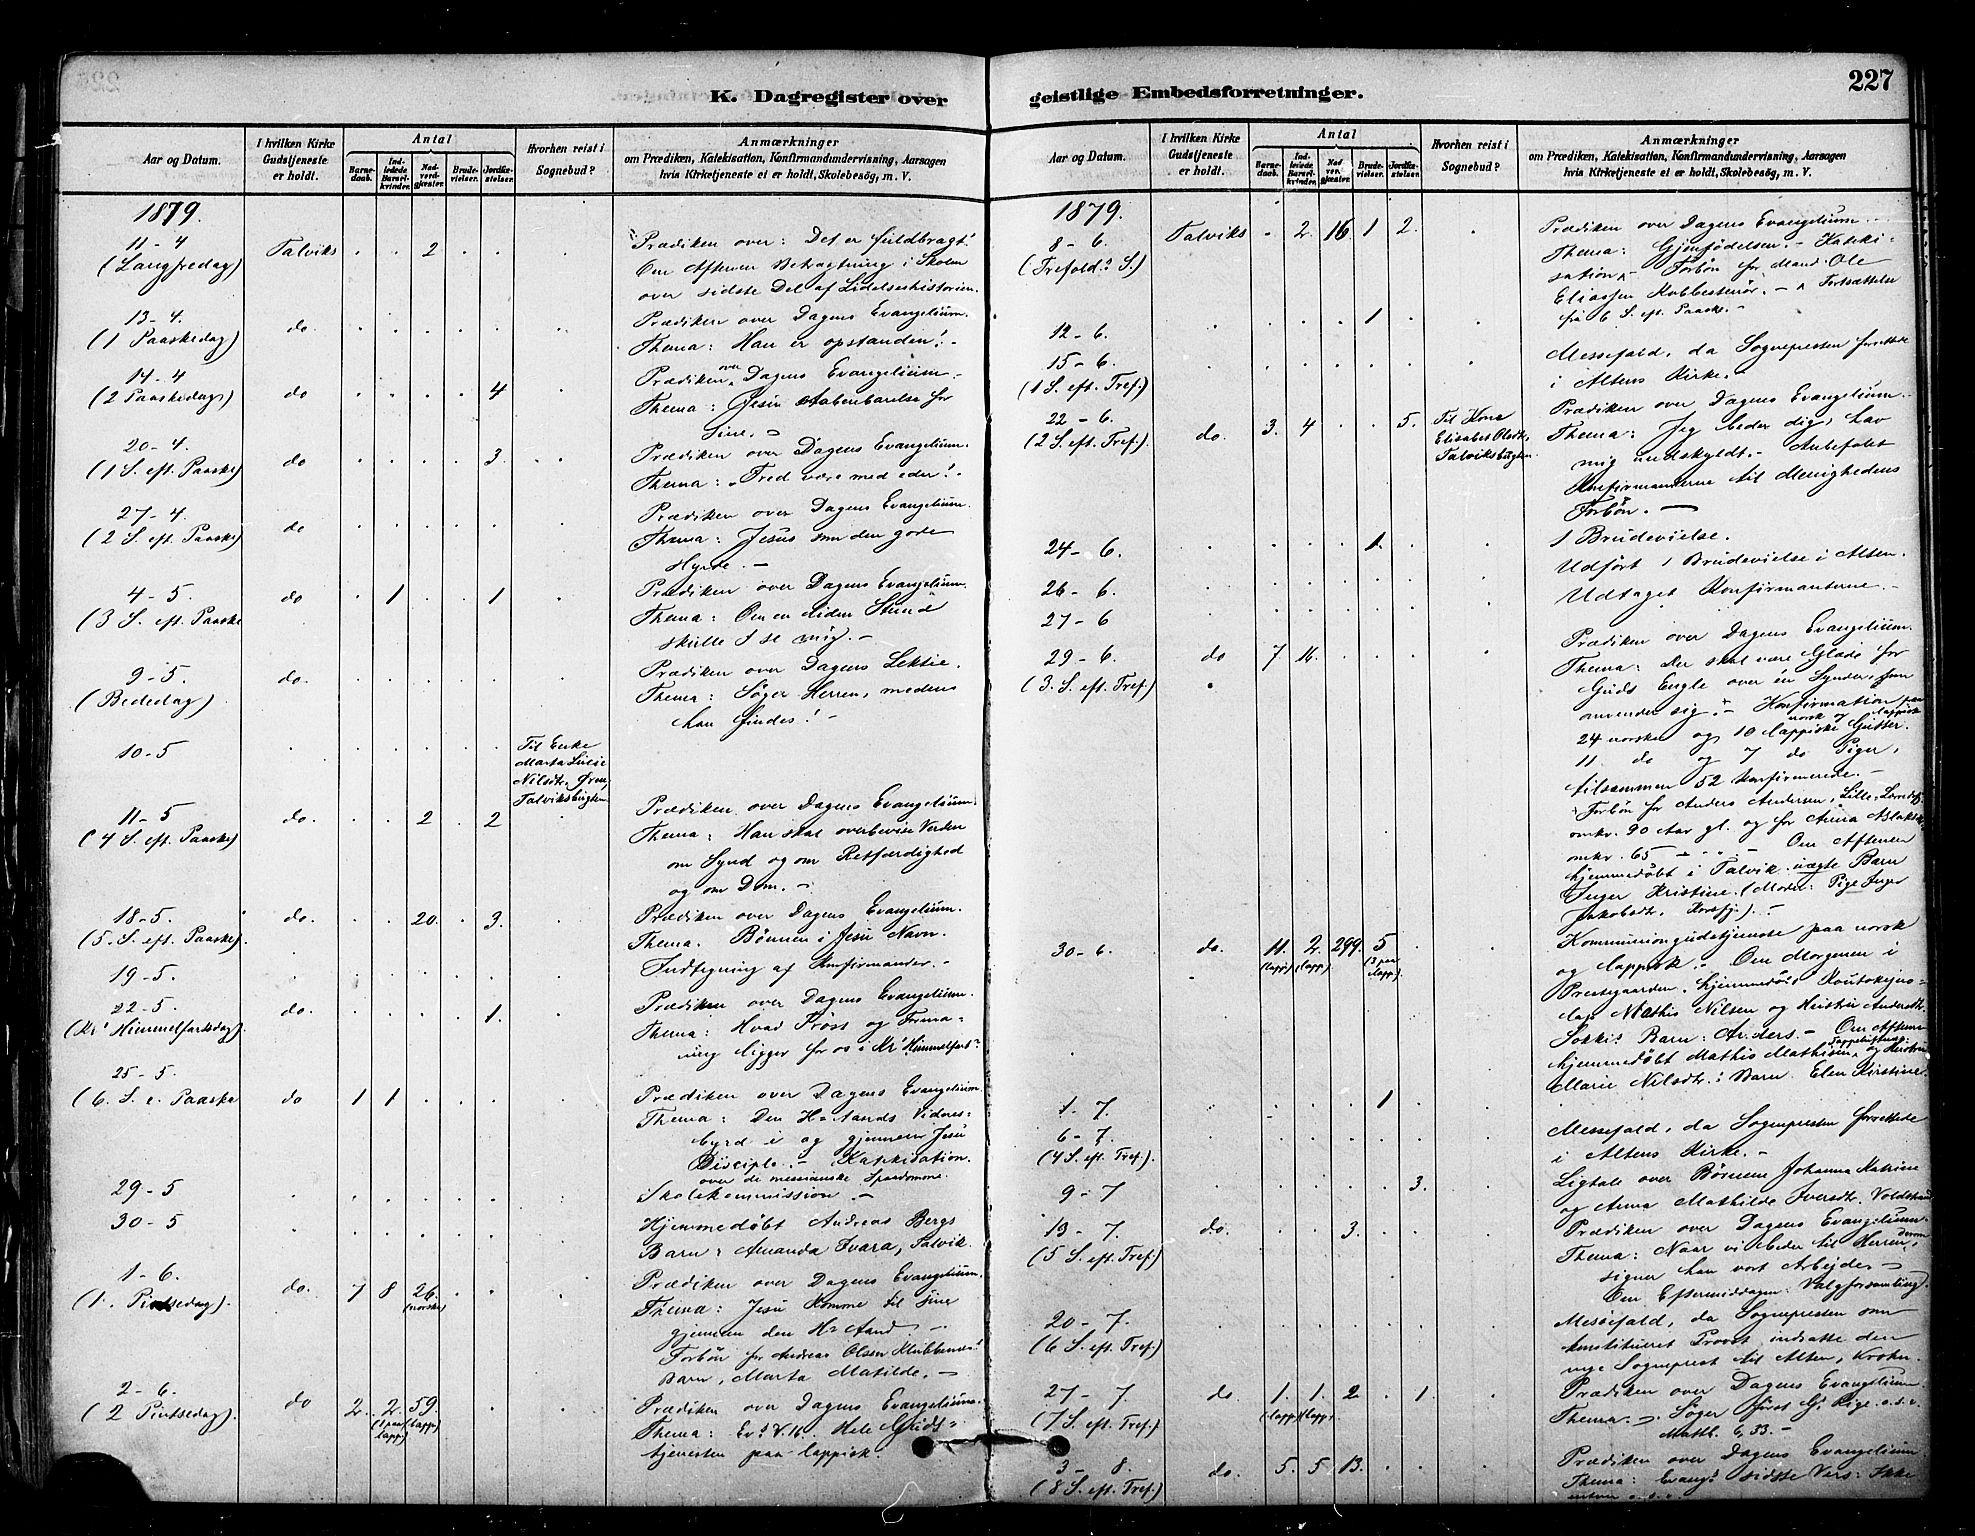 K. Dagregister over
Aar og Datum.
I hvilken Kirke Gudstjeneste er holdt.
Antal
Barnedaab.
Indledede Barselkvinder.
Nadvergjæster.
Brudevielser.
Jordfæstelser.
Hvorhen reist i Sognebud?
Anmærkninger
om Prædiken, Katekisation, Konfirmandundervisning, Aarsagen
hvis Kirketjeneste ei er holdt, Skolebesøg, m. V.
1879.
11-4 Talviks . . 2 . . . Prædiken over: Det er fuldbragt!
(Langfredag) Om Aftenen Betragtning i Skolen
over sidste Del af Lidelseshistorien.
13-4. do. . . . . . . Prædiken over Dagens Evangelium.
(1 Paaskedag) Thema: Han er opstanden! -
14-4 do . . . . 4 . Prædiken over Dagens Evangelium.-
(2 Paaskedag) Thema: Jesu Aabenbarelse for
Sine. -
20-4. do . . . . 3. . Prædiken over Dagens Evangelium.
(1 S. eft. Paaske) Thema: "Fred være med eder"! -
27-4. do . . . . . . Prædiken over Dagens Evangelium.
(2 S. eft. Paaske) Thema: Jesus som den gode
Hyrde. -
4-5. do . 1 . . 1 . Prædiken over Dagens Evangelium.
(3 S. eft. Paaske Thema: Om en liden Stund
skulle I se mig. -
9-5. do. . . . . . . Prædiken over Dagens Lektie.
(Bededag) Thema: Søger Herren, medens
han findes! -
10-5 . . . . . . Til Enke
Marta
Nilsdtr.
Talviksbugten
11-5 do. . . 2 . 2 . Prædiken over Dagens Evangelium.
(4 S. eft. Paaske) Thema: Han skal overbevise Verden
om Synd og om Retfærdighed
og om Dom. -
18-5. do. . . 20. . 3. . Prædiken over Dagens Evangelium.
(5. S. eft. Paaske). Thema. Bønnen i Jesu Navn.
19-5. Indtegning af Konfirmander. -
22-5. do. . . . . 1. . Prædiken over Dagens Evangelium.
(Kr' Himmelfartsdag). Thema: Hvad Trøst og Forma-
ning ligger for os i Kr' Himmelfart?
25-5.
(6. S. e. Paaske do 1 1 . . . . Prædiken over Dagens Evangelium.
Thema: Den H= Aands Vidnes=
byrd i og gjennem Jesu
Disciple. - Katekisation.
over de messianske Spaadomme.
29-5 . . . . . . . Skolekommission. -
30-5 Hjemmedøbt Andreas Bergs
Barn: Amanda Ivara, Talvik.
1-6. do. 7 8 26. . . . Prædiken over Dagens Evangelium.
(1. Pintsedag). (norske) Thema: Jesu Komme til sine
gjennem den H= Aand -
Forbøn for Andreas Olsen
Barn, Marta Matilde. -
2-6. do 2. 2. 59. . . . Prædiken over Dagens Evangelium.
(2 Pintsedag). (1 paa lapp) (lapp) Thema: Ev? V.16. Hele Guds=
tjenesten paa lappisk.
geistlige Embedsforretninger.
227
Aar og Datum.
I hvilken Kirke Gudstjeneste er holdt.
Antal
Barnedaab.
Indledede Barselkvinder.
Nadvergjæster.
Brudevielser.
Jordfæstelser.
Hvorhen reist i Sognebud?
Anmærkninger
om Prædiken, Katekisation, Konfirmandundervisning, Aarsagen
hvis Kirketjeneste ei er holdt, Skolebesøg, m. V.
1879.
8-6. Talviks - 2. 16. 1 2. . Prædiken over Dagens Evangelium.
(Trefold? S.) Thema: Gjenfødelsen. - Kateki-
sation. - Forbøn for Mand Ole
Eliassen - Fortsættelse
fra 6 S. eft. Paaske. -
12-6. . . . . 1 . .
15-6. . . . . . . . Messefald, da Sognepresten forrettede
(1 S. eft. Tref.) i Altens Kirke. -
22-6. do. 3. 4 . . 5. Til Kone Prædiken over Dagens Evangelium.
(2 S. eft. Tref.) Elisabet Olsdtr. Thema: Jeg beder dig, hav
Talviksbugten mig undskyldt. - Anbefalet
Konfirmanterne til Menighedens
Forbøn. -
24-6. . . . . 1. . . 1 Brudevielse.
26-6. Udført 1 Brudevielse i Alten.
27-6 Udtaget Konfirmanterne. -
29-6. do 7 16. . . . . Prædiken over Dagens Evangelium.
(3. S. eft. Tref.) Thema: Der skal være Glæde for
Guds Engle over en Synder, som
omvender sig. - Konfirmation paa
norsk og lappisk
24 norske og 10 lappiske Gutter.
11 do og 7 do Piger,
tilsammen 52 Konfirmerede. -
Forbøn for Anders Andersen, Lille
omkr. 90 Aar gl. og for Anna
omkr. 65 - " - Om Aftenen
hjemmedøbt i Talvik uægte Barn
Inger Kristine (Moder: Pige Inger
Jakobsdtr. Korsfj.). -
30-6. do. 11. 2. 299. 5 . . Kommuniongudstjeneste paa norsk
(lapp) (lapp) (3 paa lapp.) og lappisk. - Om Morgenen i
Prestegaarden hjemmedøbt Koutokeino-
lap Mathis Nilsen og Hustru Andersdtr.
Barn: Anders. - Om Aftenen
hjemmedøbt Mathis Mathisen, og Hustru
Marie Nilsdtr.: Barn. Elen Kirstine.
1-7. - . . 1 . .
6-7. . . . . . . . Messefald, da Sognepresten forrettede
(4 S. eft. Tref.). i Altens Kirke. -
9-7 . . . . . 3. . Ligtale over Børnene Johanna Katrine
og Anna Mathilde Iversdtr.
13-7. do. . . 3. . . . Prædiken over Dagens Evangelium.
(5 S. eft. Tref.) Thema: Naar vi beder til Herren derom,
signer han vort Arbejde. -
Om Eftermiddagen: Valgforsamling.
20-7. . . . . . . . Messefald, da Sognepresten som
(6 S. eft. Tref.) konstitueret Provst indsatte den
nye Sogneprest til Alten,
27-7 do 1. 1. 2. . 1. . Prædiken over Dagens Evangelium
(7 S. eft. Tref.) (lapp) (lapp) Thema. Søger først G' Rige. o.s.v.
Matth. 6,33. -
3-8. do. 5. 5 13. . . . Prædiken over Dagens Evangelium
(8 S. eft. Tref.) Thema: Evang? sidste Vers: Ikke
o.s.v.